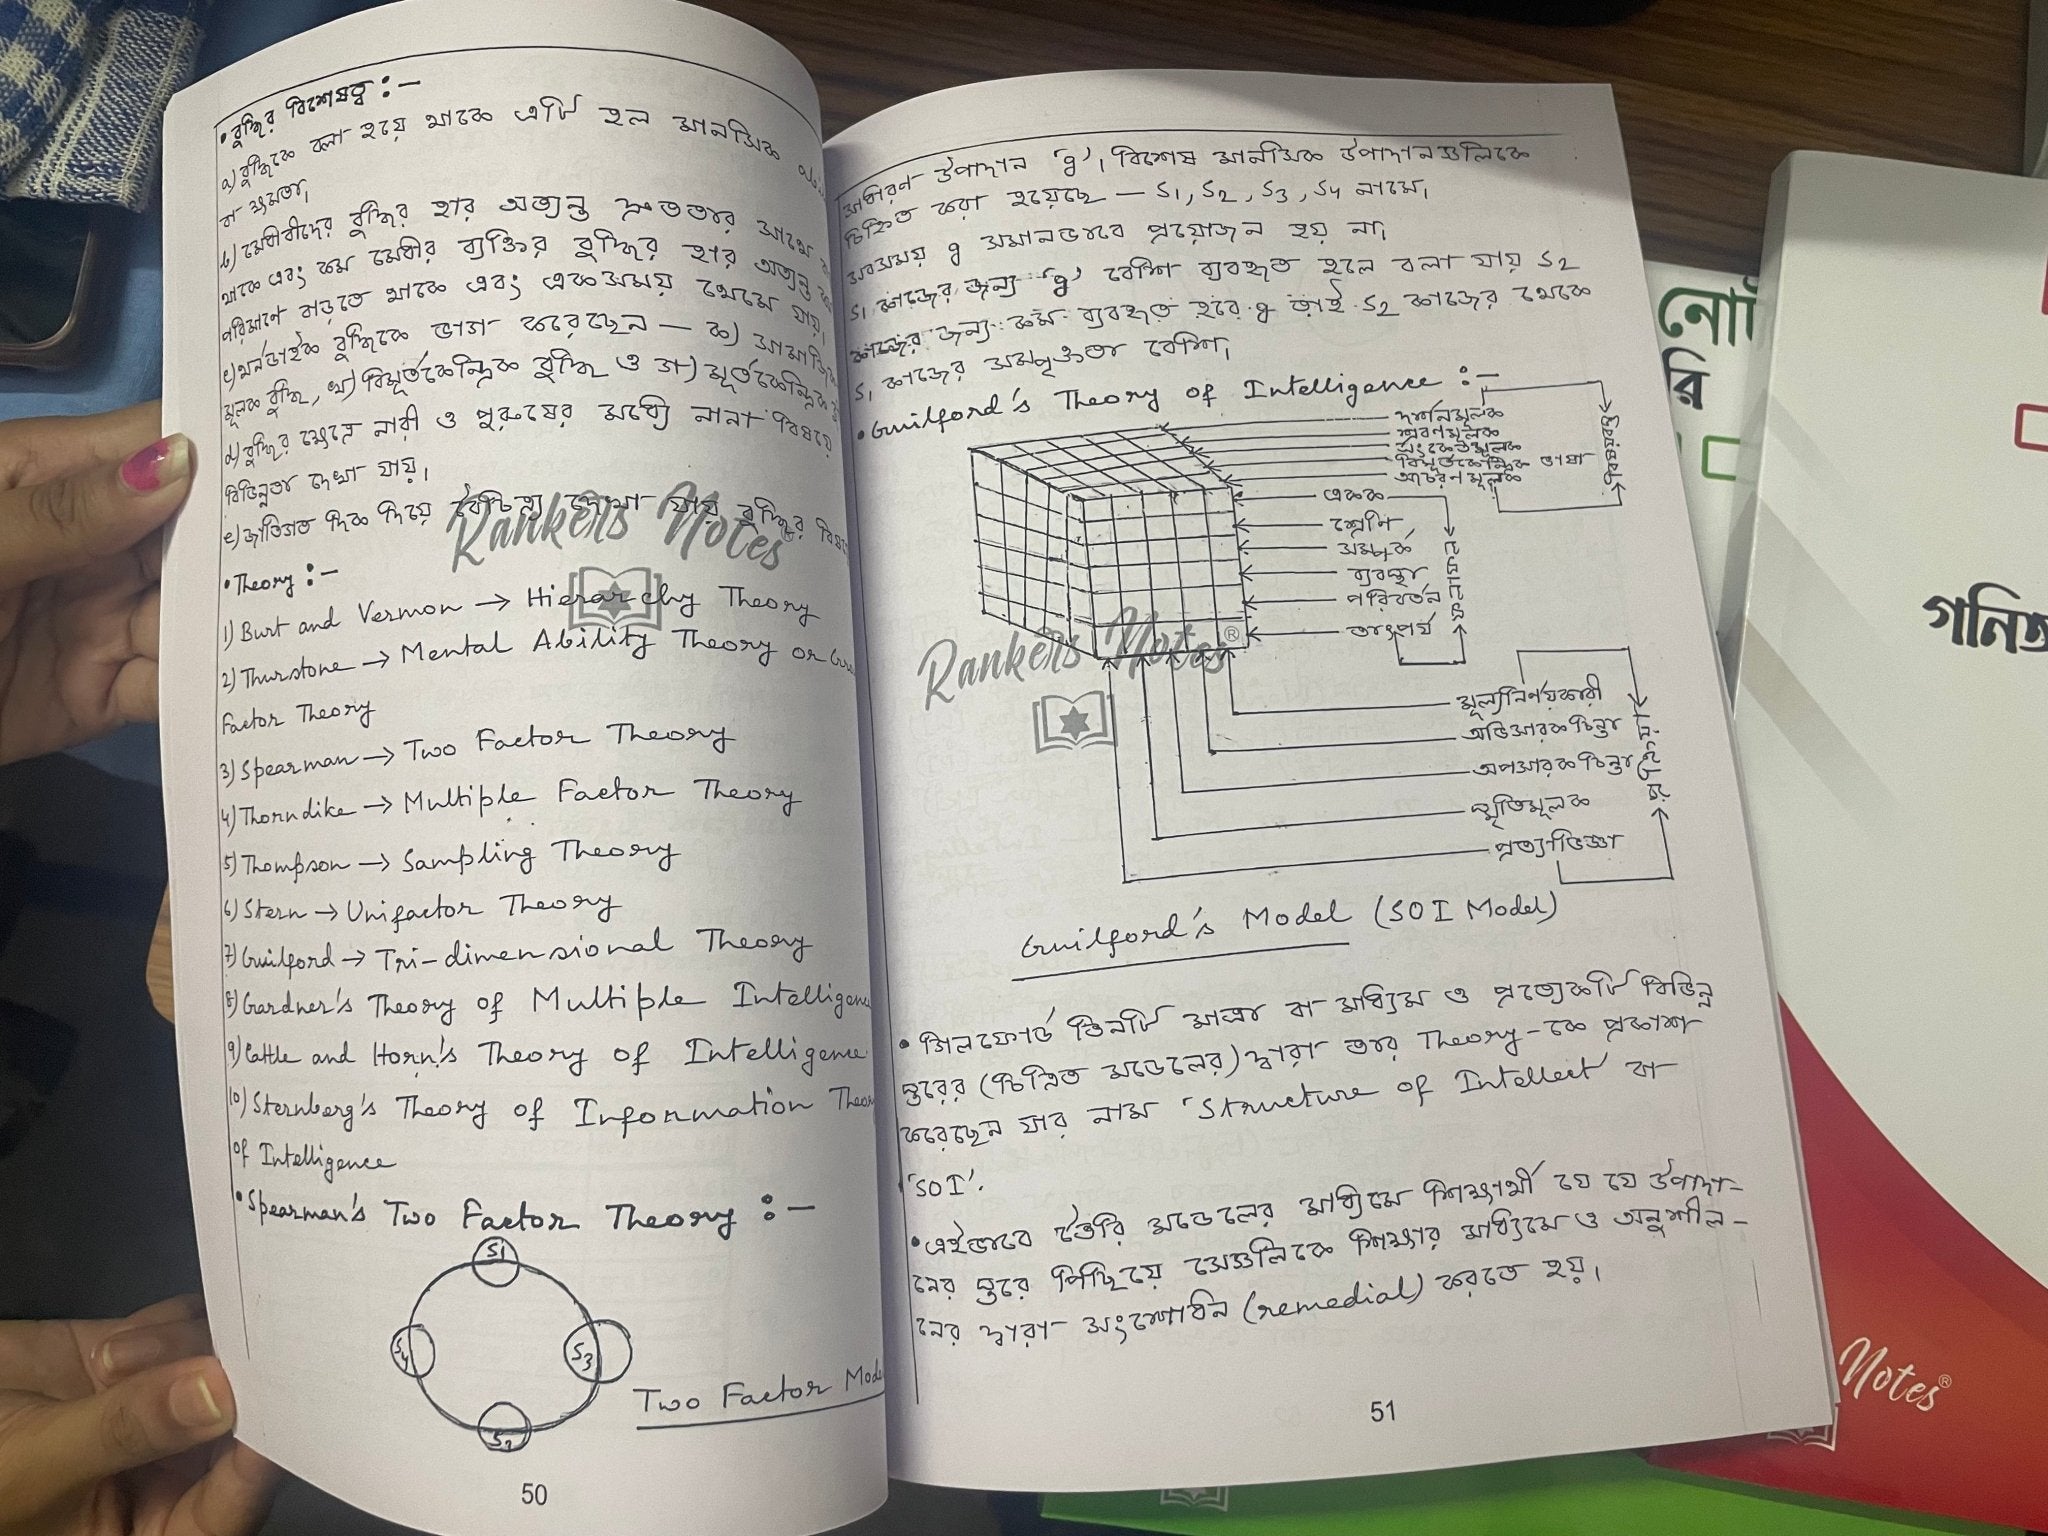 • বুদ্ধির বিশেষত্ব :-
a) বুদ্ধিকে বলা হয়ে থাকে এটি হল মানসিক
বা ক্ষমতা।
b) মেধাবীদের বুদ্ধির হার অত্যন্ত দ্রুততার সাথে
থাকে এবং কম মেধার ব্যক্তির বুদ্ধির হার অত্যন্ত
পরিমাণে বাড়তে থাকে এবং একসময় থেমে যায়।
c) থর্নডাইক বুদ্ধিকে ভাগ করেছেন — ক)
মূলক বুদ্ধি, খ) বিমূর্তকেন্দ্রিক বুদ্ধি ও গ) মূর্তকেন্দ্রিক
d) বুদ্ধির ক্ষেত্রে নারী ও পুরুষের মধ্যে নানা বিষয়ে
বিভিন্নতা দেখা যায়।
e) জাতিগত দিক দিয়ে বৈচিত্র্য দেখা যায় বুদ্ধির
Rankers Notes®
• Theory :-
1) Burt and Vermon → Hierarchy Theory
2) Thurstone → Mental Ability Theory or
Factor Theory
3) Spearman → Two Factor Theory
4) Thorndike → Multiple Factor Theory
5) Thompson → Sampling Theory
6) Stern → Unifactor Theory
7) Guilford → Tri-dimensional Theory
8) Gardner's Theory of Multiple Intelligence
9) Cattle and Horn's Theory of Intelligence
10) Sternberg's Theory of Information
of Intelligence
• Spearman's Two Factor Theory :-
S1
S4
S3
S2
Two Factor
50
সাধারণ উপাদান 'g'। বিশেষ মানসিক উপাদানগুলিকে
চিহ্নিত করা হয়েছে — S1, S2, S3, S4 নামে।
সবসময় g সমানভাবে প্রয়োজন হয় না।
S1 কাজের জন্য 'g' বেশি ব্যবহৃত হলে বলা যায় S2
কাজের জন্য কম ব্যবহৃত হবে g তাই S2 কাজের থেকে
S1 কাজের সম্পৃক্ততা বেশি।
• Guilford's Theory of Intelligence :-
দর্শনমূলক
শ্রবণমূলক
সংকেতমূলক
বিমূর্তকেন্দ্রিক ভাষা
আচরণমূলক
বিষয়বস্তু
একক
শ্রেণি
সম্পর্ক
ব্যবস্থা
পরিবর্তন
তাৎপর্য
Rankers Notes®
মূল্যনির্ণয়কারী
অভিসারক চিন্তা
অপসারক চিন্তা
স্মৃতিমূলক
প্রত্যাভিজ্ঞা
Guilford's Model (SOI Model)
• গিলফোর্ড তিনটি মাত্রা বা মাধ্যমে ও প্রত্যেকটি বিভিন্ন
স্তরের (চিত্রিত মডেলের) দ্বারা তার Theory-কে প্রকাশ
করেছেন যার নাম 'Structure of Intellect বা
'SOI'.
• এইভাবে তৈরি মডেলের মাধ্যমে শিক্ষার্থী যে যে উপাদা-
নের স্তরে পিছিয়ে সেগুলিকে শিক্ষার মাধ্যমে ও অনুশীল-
নের দ্বারা সংশোধন (remedial) করতে হয়।
51
রি
গনিত
Notes®